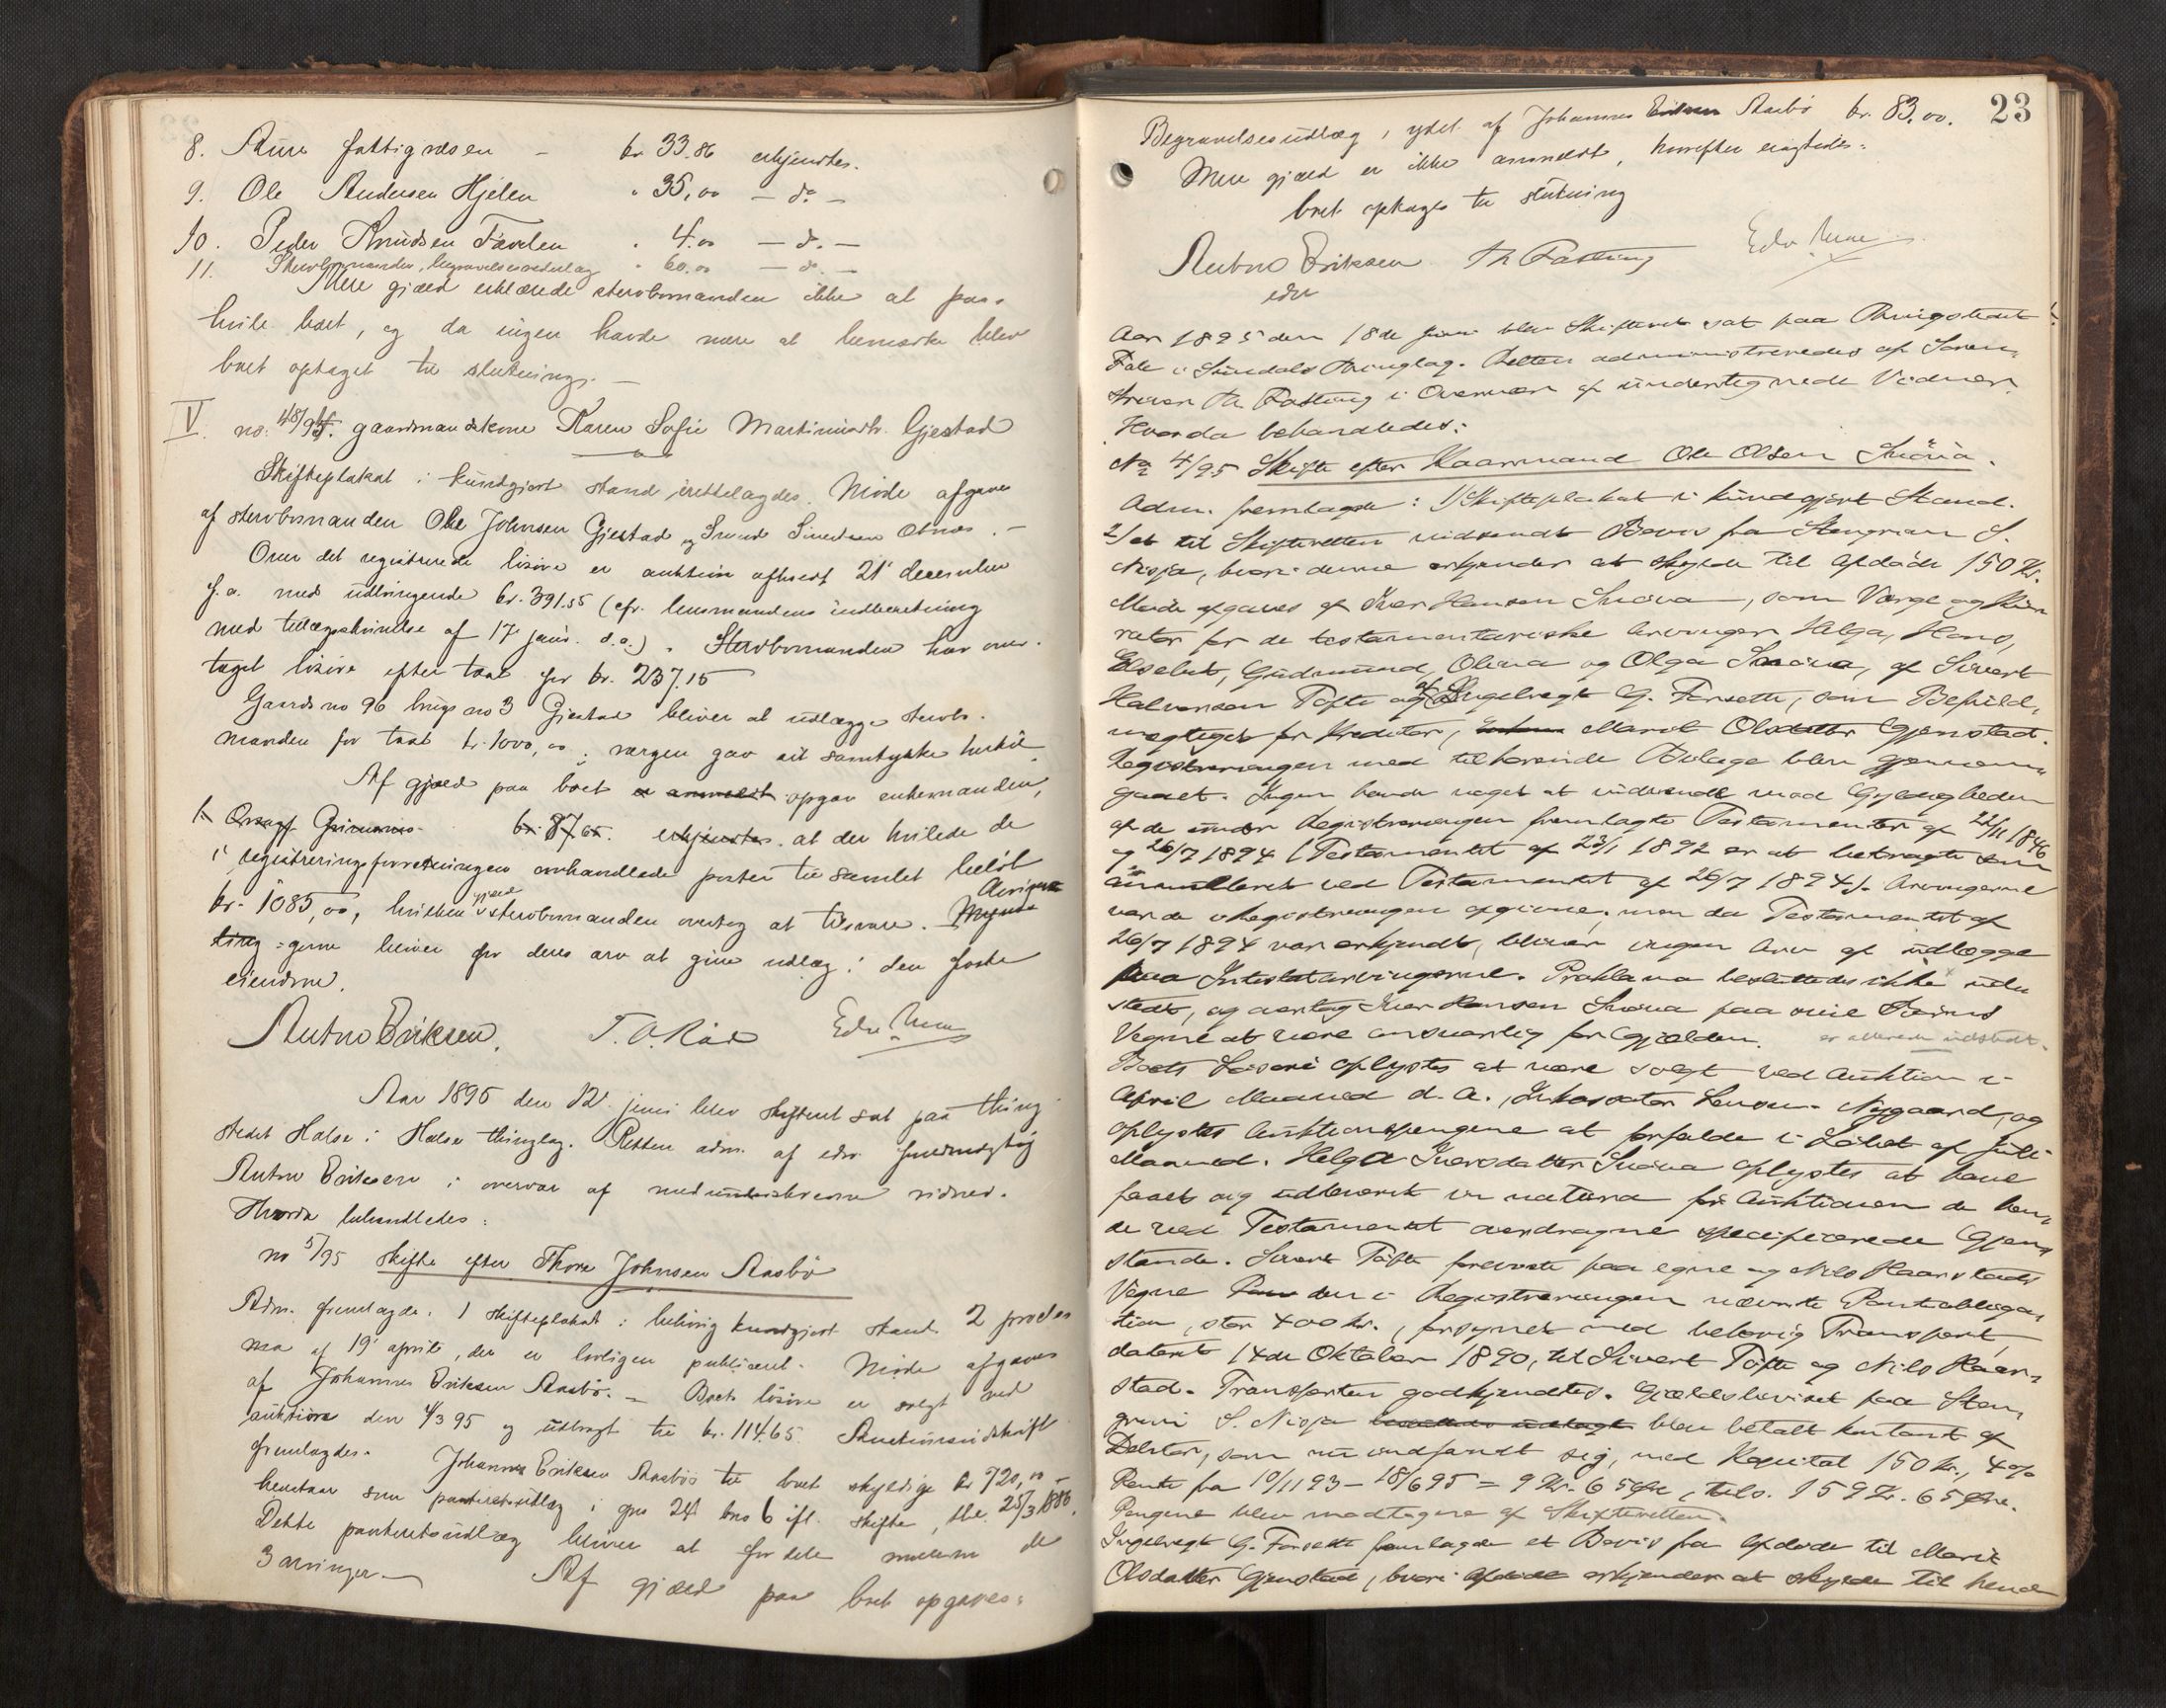 8. Aure fattigvæsen - kr 33.86 erkjendtes.
9. Ole Andersen Hjelen " 35,00 - do -
10. Peder Knudsen Tævlen " 4.00 - do. -
11. Stervbomanden, begravelsesvederlag " 60.00 - do. -
Mere gjæld erklærede stervbomanden ikke at paa-
hvile boet, og da ingen havde mere at bemærke blev
boet optaget til slutning. -
V. no. 48/94. gaardmandskone Karen Sofie Martinusdtr. Gjestad
Skifteplakat i kundgjort stand irettelagdes. Møde afgaves
af stervbomanden Ole Johnsen Gjestad og Sivert Sivertsen . -
Over det registrerede løsøre er auktion afholdt 21' december
f.a. med udbringende kr. 391.55 (cfr. lensmandens indberetning
med tillægsskrivelse af 17 janr. d.a.). Stervbomanden har over-
taget løsøre efter taxt for kr. 237.15
Gaards no 96 brugs no 3 Gjestad bliver at udlægge stervbo-
manden for taxt kr. 1000,00; værgen gav sit samtykke hertil.
Af gjæld paa boet er anmeldt opgav enkemanden,
1. kr. 87.65. erkjendtes. at der hvilede de
i registreringsforretningen omhandlede poster til samlet beløb
kr. 1085,00, hvilken gjæld stervbomanden overtog at tilsvare. Arvin-
ling-gerne bliver for deres arv at give udlæg i den faste
eiendom.
Anton Eriksen. T. O. Edv.
Aar 1895 den 12 juni blev skifteret sat paa thing-
stedet Halse i Halse thinglag. Retten adm. af edsv. fuldmægtig
Anton Eriksen i overvær af medunderskrevne vidner.
Hvorda behandledes:
no 5/95 skifte efter Thore Johnsen Aasbø
Adm. fremlagde. 1 skifteplakat i behørig kundgjort stand. 2 procla-
ma af 19' april, der er lovligen publiceret. Møde afgaves
af Johannes Eriksen Aasbø. - Boets løsøre er solgt ved
auktion den 4/3 95 og udbragt til kr. 114.65. Auktionsudskrift
fremlagdes. Johannes Eriksen Aasbøs til boet skyldige kr 720,00 -
henstaar som panteretsudlæg i gno 24 bno 6 ifl. skifte, tbl. 25/3 1886.
Dette panteretsudlæg bliver at fordele mellem de
3 arvinger. - Af gjæld paa boet opgaves:
23
Begravelsesudlæg, ydet af Johannes Eriksen Aasbø kr. 83.00.
Mere gjæld er ikke anmeldt, hvorefter eragtedes:
boet optages til slutning
Anton Eriksen Th Fasting Edv.
edsv
Aar 1895 den 18de Juni blev Skifteret sat paa Thingstedet
Fale i Sundals Thinglag. Retten administreredes af Soren-
skriver Th Fasting i Overvær af undertegnede Vidner.
Hvorda behandledes:
No 4/95 Skifte efter Kaarmand Ole Olsen Snøva.
Adm. fremlagde: 1/ Skifteplakat i kundgjort Stand.
2/ et til Skifteretten indsendt Bevis fra Stengrim S.
Nisja, hvori denne erkjender at skylde til Afdøde 150 Kr.
Møde afgaves af Iver Hansen Snøva, som Værge og Ku-
rator for de testamentariske Arvinger Helga, Hans,
Elsebet, Gudmund, Olina og Olga Snøva, af Sivert
Halvorsen Tøfte og af Ingebregt G. Forsette, som Befuld-
mægtiget for Kreditor, Marit Olsdatter Gjenstad.
Registreringen med tilhørende Bilage blev gjennem-
gaaet. Ingen havde noget at indvende mod Gyldigheden
af de under Registreringen fremlagte Testamenter af 22/11 1846
og 26/7 1894 (Testamentet af 23/1 1892 er at betragte som
annulleret ved Testamentet af 26/7 1894). Arvingerne
var de i Registreringen opgivne; men da Testamentet af
26/7 1894 var erkjendt, bliver ingen Arv at udlægge
paa Intestatarvingerne. Proklama besluttedes ikke udst
stedt, og overtog Iver Hansen Snøva paa sine
Vegne at være ansvarlig for Gjælden. er allerede udstedt.
Boets Løsøre oplystes at være solgt ved Auktion i
April Maaned d. A., Inkassator Lensm. Nygaard, og
oplystes Auktionspengene at forfalde i Løbet af Juli
Maaned. Helga Iversdatter Snøva oplystes at have
faaet sig udleveret in natura før Auktionen de hen-
de ved Testamentet overdragne specificerede Gjen-
stande. Sivert Tøfte foreviste paa egne og Nils Haarstads
Vegne den i Registreringen nævnte Pantobliga-
tion, stor 400 Kr., forsynet med behørig Transport,
dateret 14de Oktober 1890, til Sivert Tøfte og Nils Haar-
stad. Transporten godkjendtes. Gjældsbeviset paa Sten-
grim S. Nisja blev betalt kontant af
Debitor, som nu indfandt sig, med Kapital 150 Kr., 4%
Rente fra 10/11 93 - 18/6 95 = 9 Kr. 65 Øre, tils. 159 Kr. 65 Øre.
Pengene blev modtagne af Skifteretten.
Ingebregt G. Forsette fremlagde et Bevis fra Afdøde til Marit
Olsdatter Gjenstad, hvori Afdøde erkjender at skylde til hende